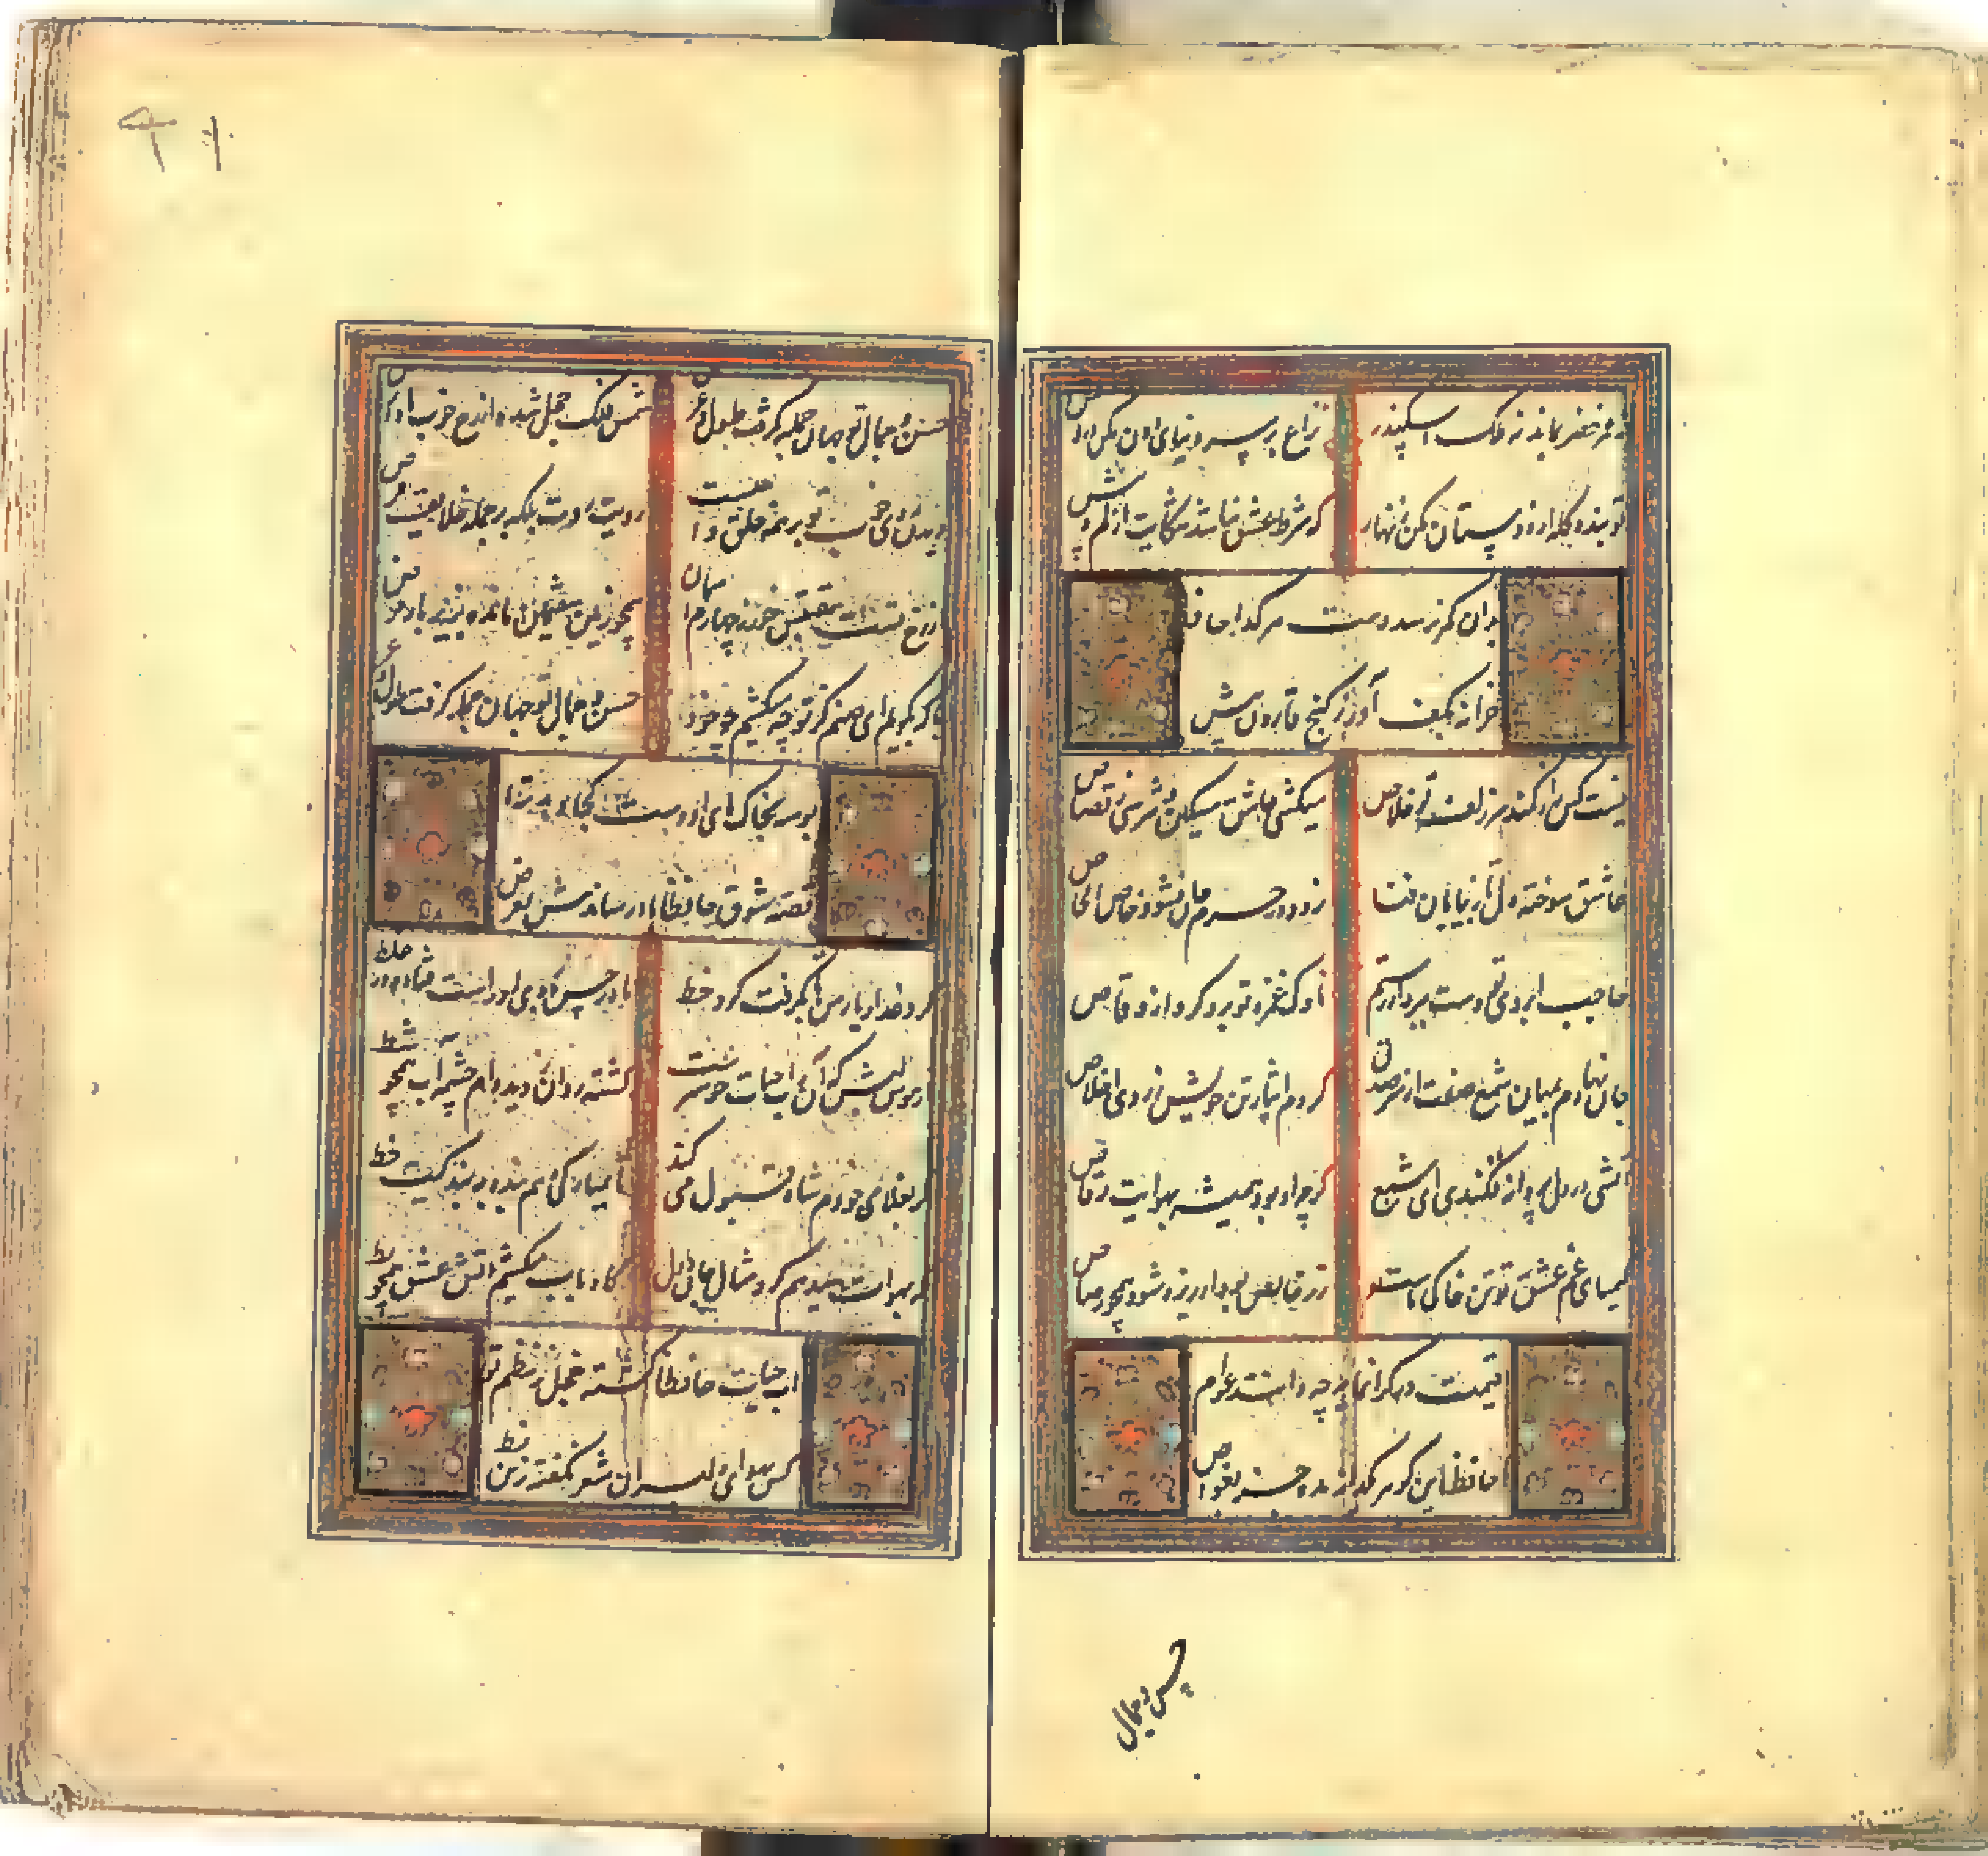 نه عمر خضر بماند نه ملک اسکندر نزاع بر سر دنیای دون مکن درویش
تو بنده گله از دوستان مکن زنهار که شرط عشق نباشد شکایت از کم و بیش
بدان کمر نرسد دست هر گدا حافظ
خزانه بکف آور ز گنج قارون بیش
نیست کس را ز کمند سر زلف تو خلاص میکشی عاشق مسکین و نترسی ز قصاص
عاشق سوخته دل تا به بیابان فنا نرود در حرم جان نشود خاص الخاص
حاجب ابروی تو دست برد از رستم ناوک غمزه تو برد گرو از وقاص
جان نهادم بمیان شمع صفت از سر صدق کردم ایثار تن خویش ز روی اخلاص
آتشی در دل پروانه فکندی ای شمع گرچه او بود همیشه بهوایت رقاص
کیمیای غم عشق تو تن خاکی ما زر خالص
قیمت در گرانمایه چه دانند عوام
حافظا این گوهر یکدانه مده جز بخواص
حسن و جمال
۹۱
حسن و جمال تو جهان جمله گرفت طول و عرض شمس فلک خجل شده از رخ خوب ماه ارض
دیدن روی خوب تو بر همه خلق واجبست رویت روت بلکه بر جمله ملایکست فرض
از رخ تست مقتبس خور ز چهارم آسمان همچو زمین هفتمین مانده بزیر بار قرض
با که بگویم ای صنم گر تو چه میکشیم چو خود حسن و جمال تو جهان جمله گرفت طول عرض
بوسه بخاک پای او دست کجا دهد ترا
قصه شوق حافظا باد رساندش بعرض
گرد عذار یار من تا بگرفت گرد خط ماه ز حسن روی او راست فتاده در غلط
از هوس لبش که آن ز آب حیات خوشترست گشته روان ز دیده‌ام چشمه آب همچو شط
گر بغلامی خودم شاه قبول می کند تا بمبارکی دهم بنده به بندگیت خط
گه بهوات میدهم گرد مثال جان و دل گاه بآب میکشیم آتش عشق همچو بط
آب حیات حافظا گشته خجل ز نظم تو
کس بهوای دلبران شعر نگفته زین نمط